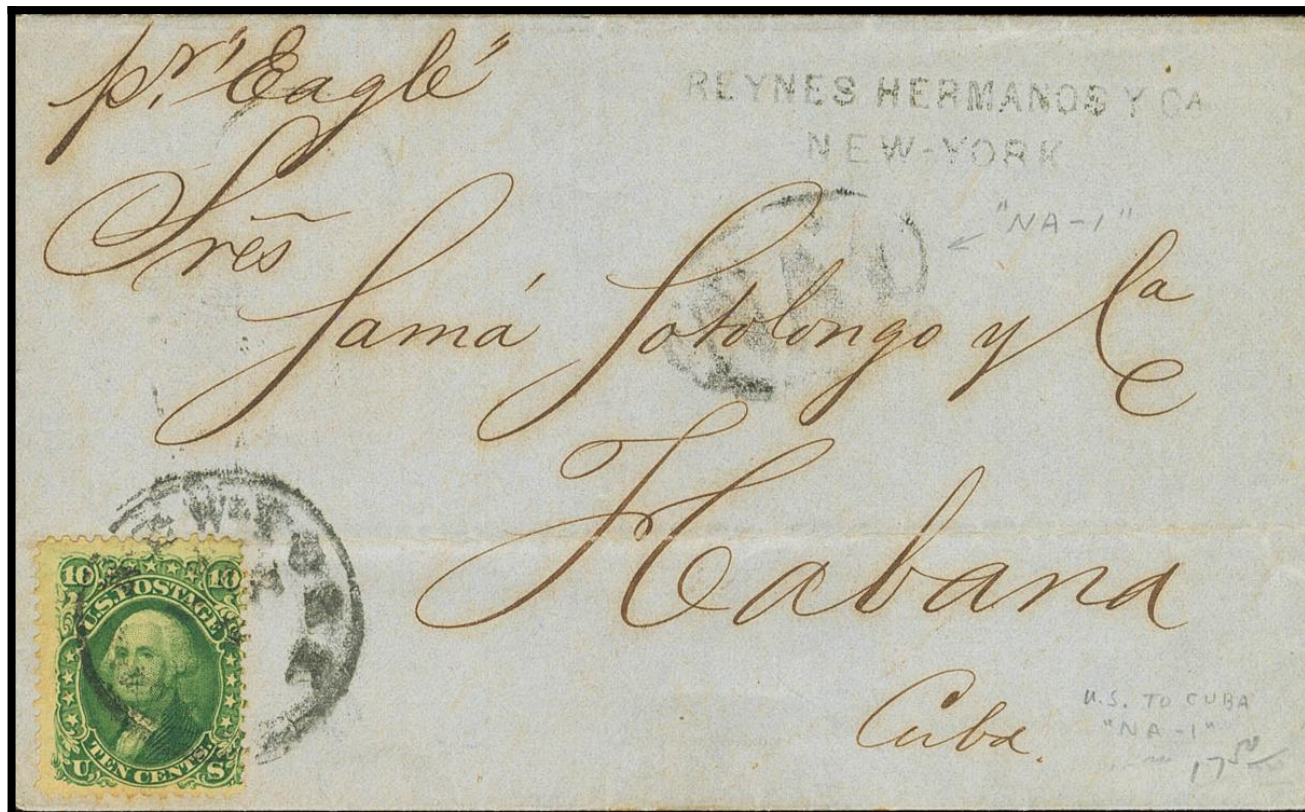 pr. "Eagle"
REYNES HERMANOS Y CA
NEW-YORK
"NA-1"
Sres
Samá Sotolongo y Ca
Habana
Cuba.
U.S. TO CUBA
"NA-1"
17 50
10 10
U.S. POSTAGE
TEN CENTS.
U S